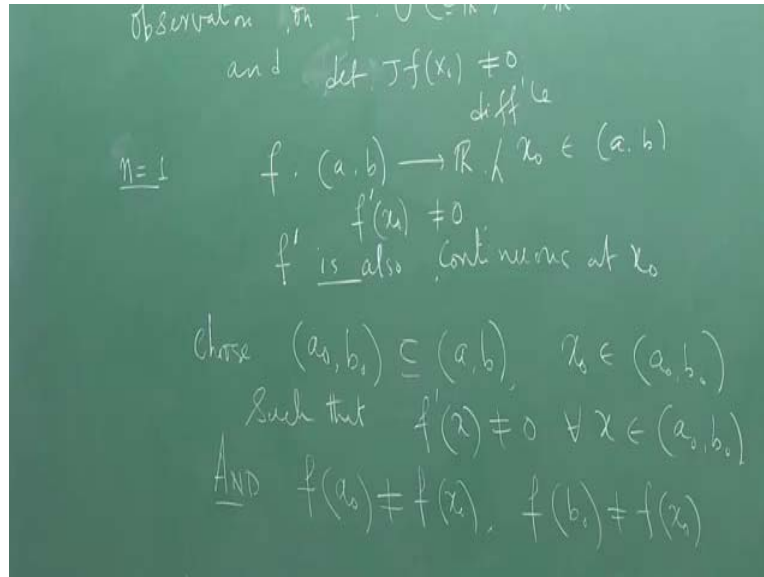 Observation on f : U (⊆ ℝ
and det Jf(x₀) ≠ 0
diff'le
n=1 f : (a, b) → ℝ, x₀ ∈ (a, b)
f'(x₀) ≠ 0
f' is also continuous at x₀
Choose (a₀, b₀) ⊆ (a, b), x₀ ∈ (a₀, b₀)
Such that f'(x) ≠ 0 ∀ x ∈ (a₀, b₀)
AND f(a₀) ≠ f(x₀), f(b₀) ≠ f(x₀)